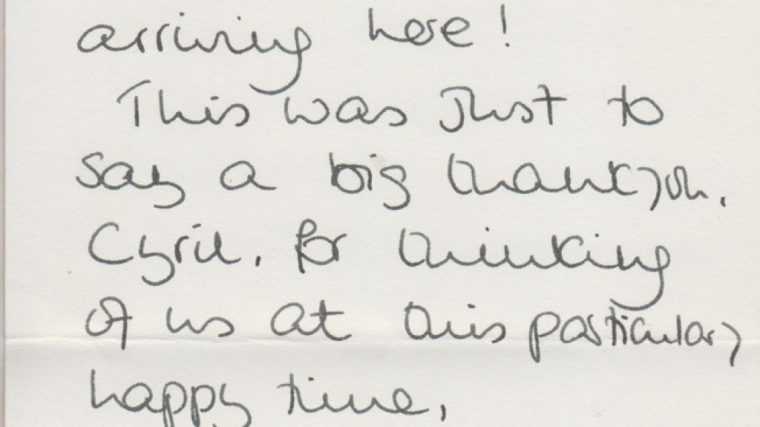 arriving here!
This was just to
say a big thankyou,
Cyril, for thinking
of us at this particularly
happy time,